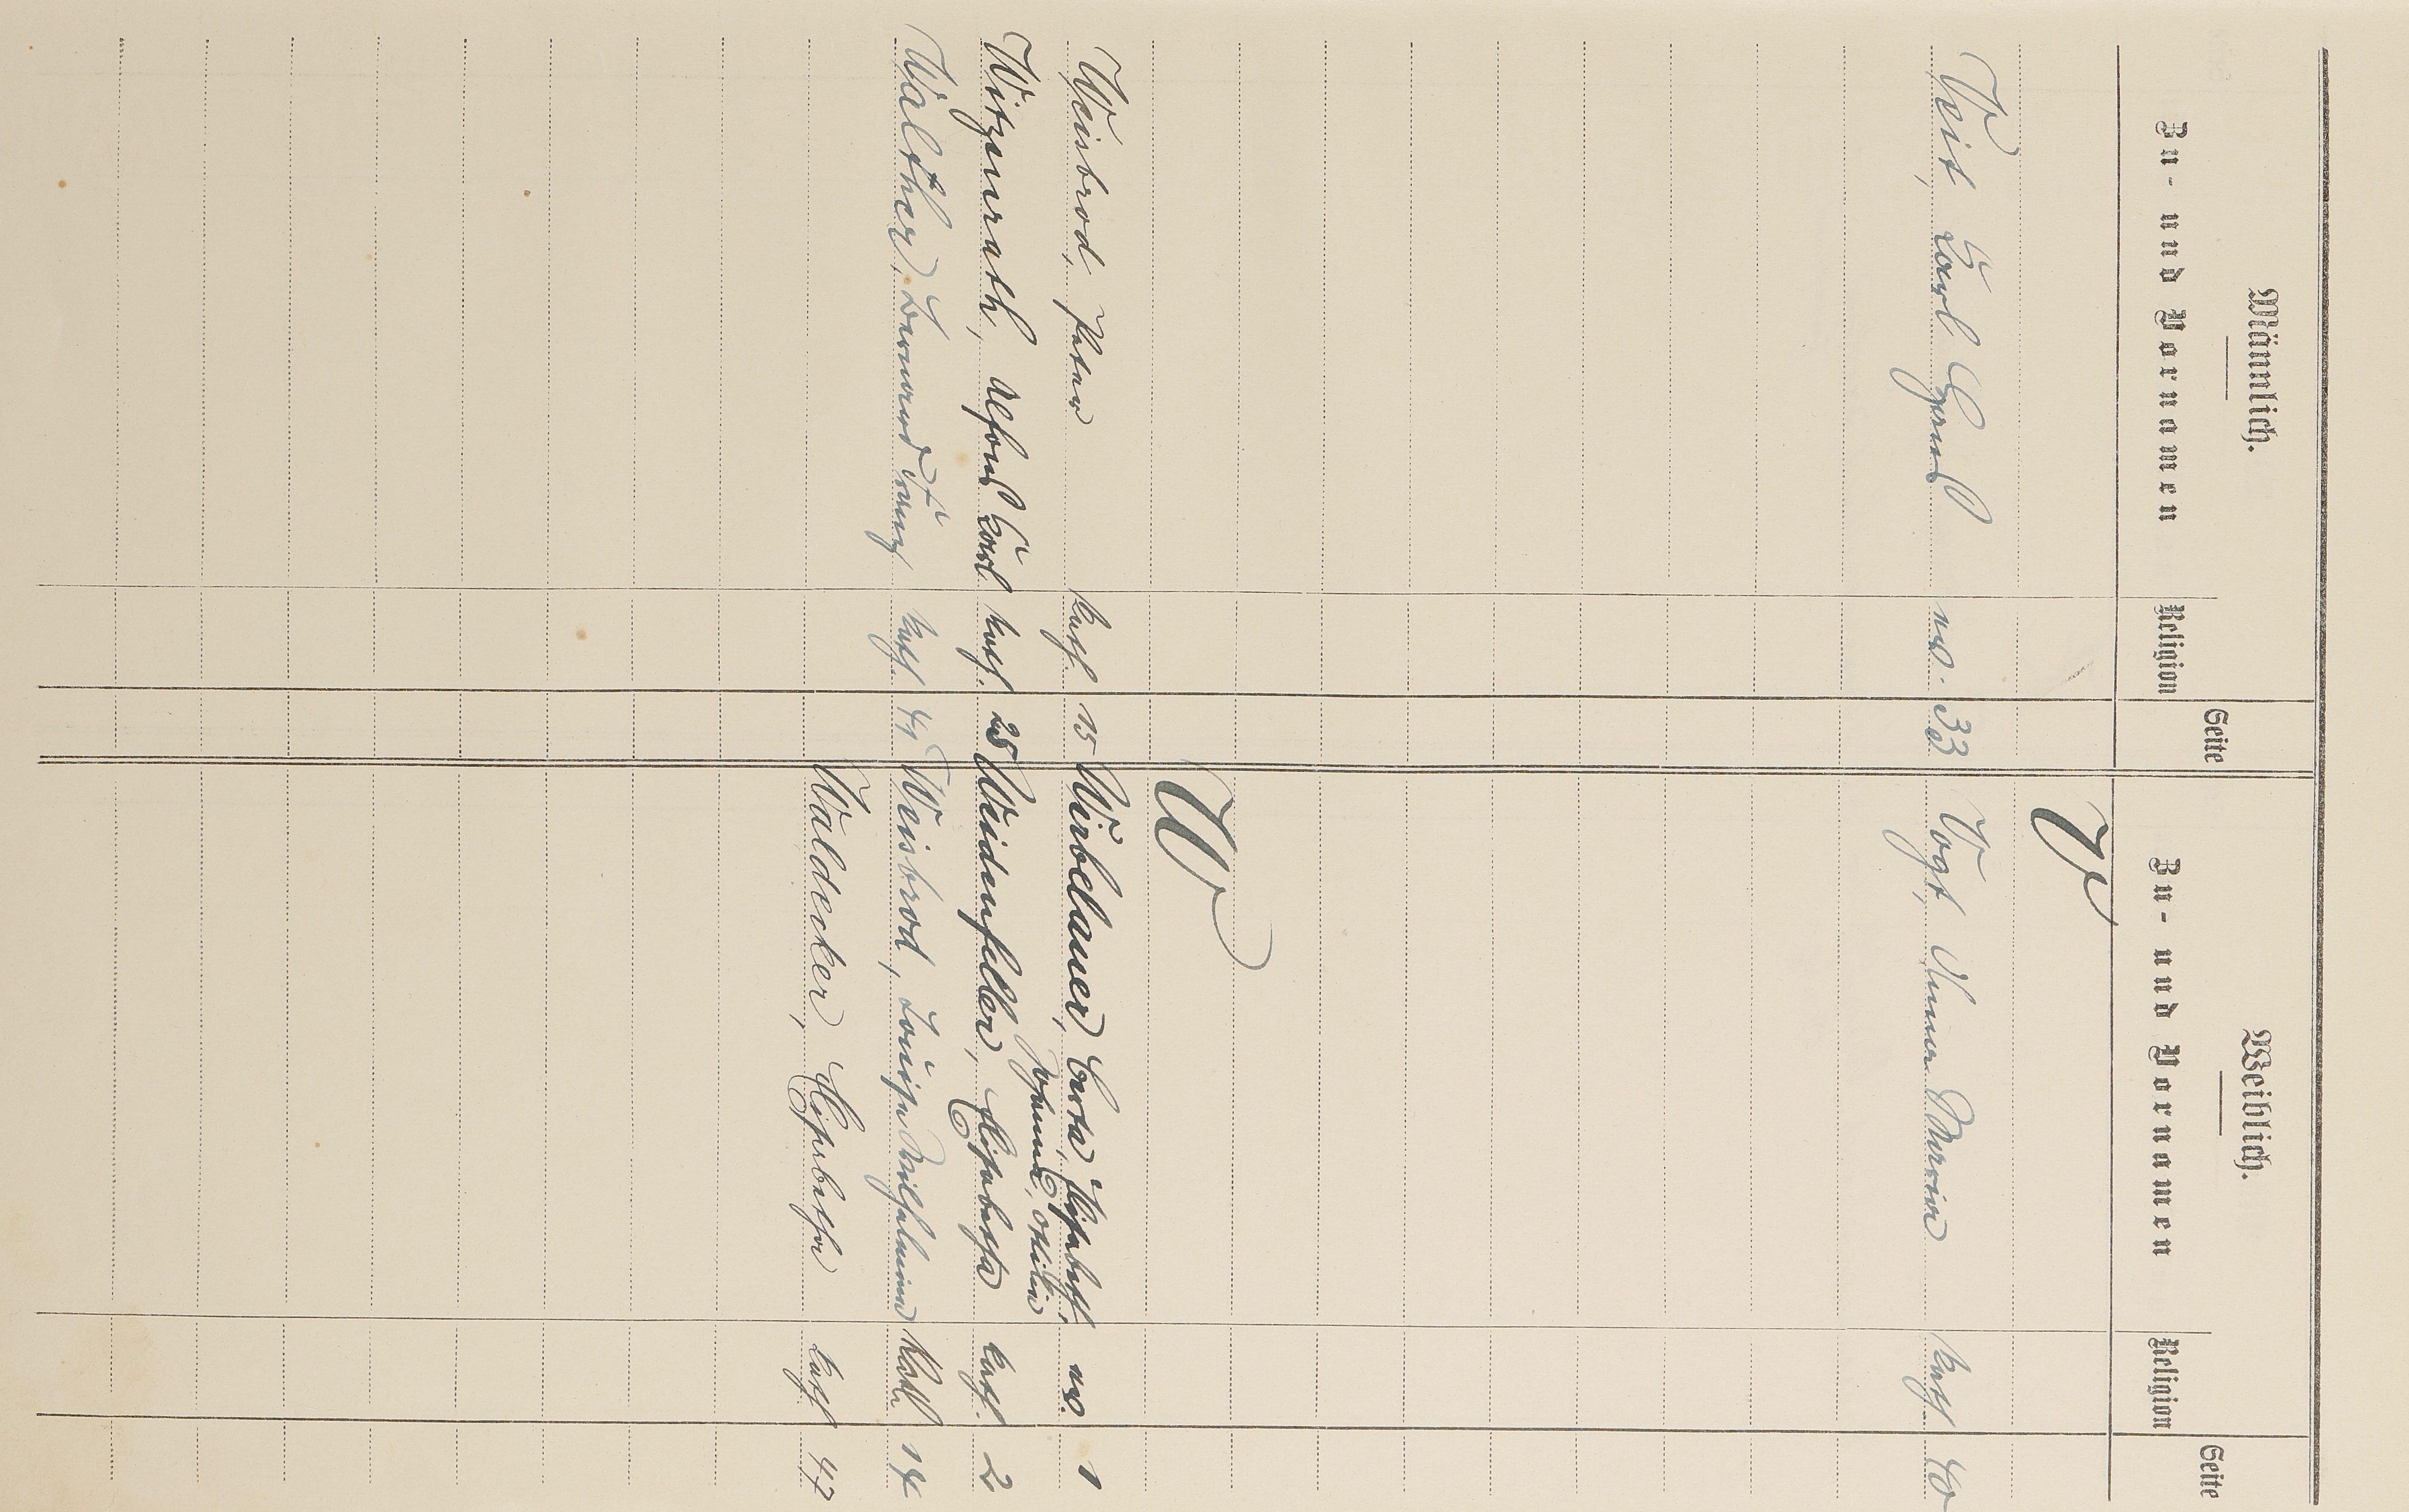 Männlich. Weiblich.
Zu- und Vornamen Religion Seite Zu- und Vornamen Religion Seite
V
Veit, Karl Ernst ev. 33 Vogt, Anna Maria kath. 40
W
Weisbrod, Peter kath. 15 Wirbelauer, Berta, Elisabeth. ev. 1
Johanna, Ottilie
Witzenrath, Alfons Karl kath. 25 Weidenfeller, Elisabetha kath. 2
Walther, kath. 41 Weisbrod, Luise Wilhelmine Kath 14
Waldecker, Elisabetha kath 47